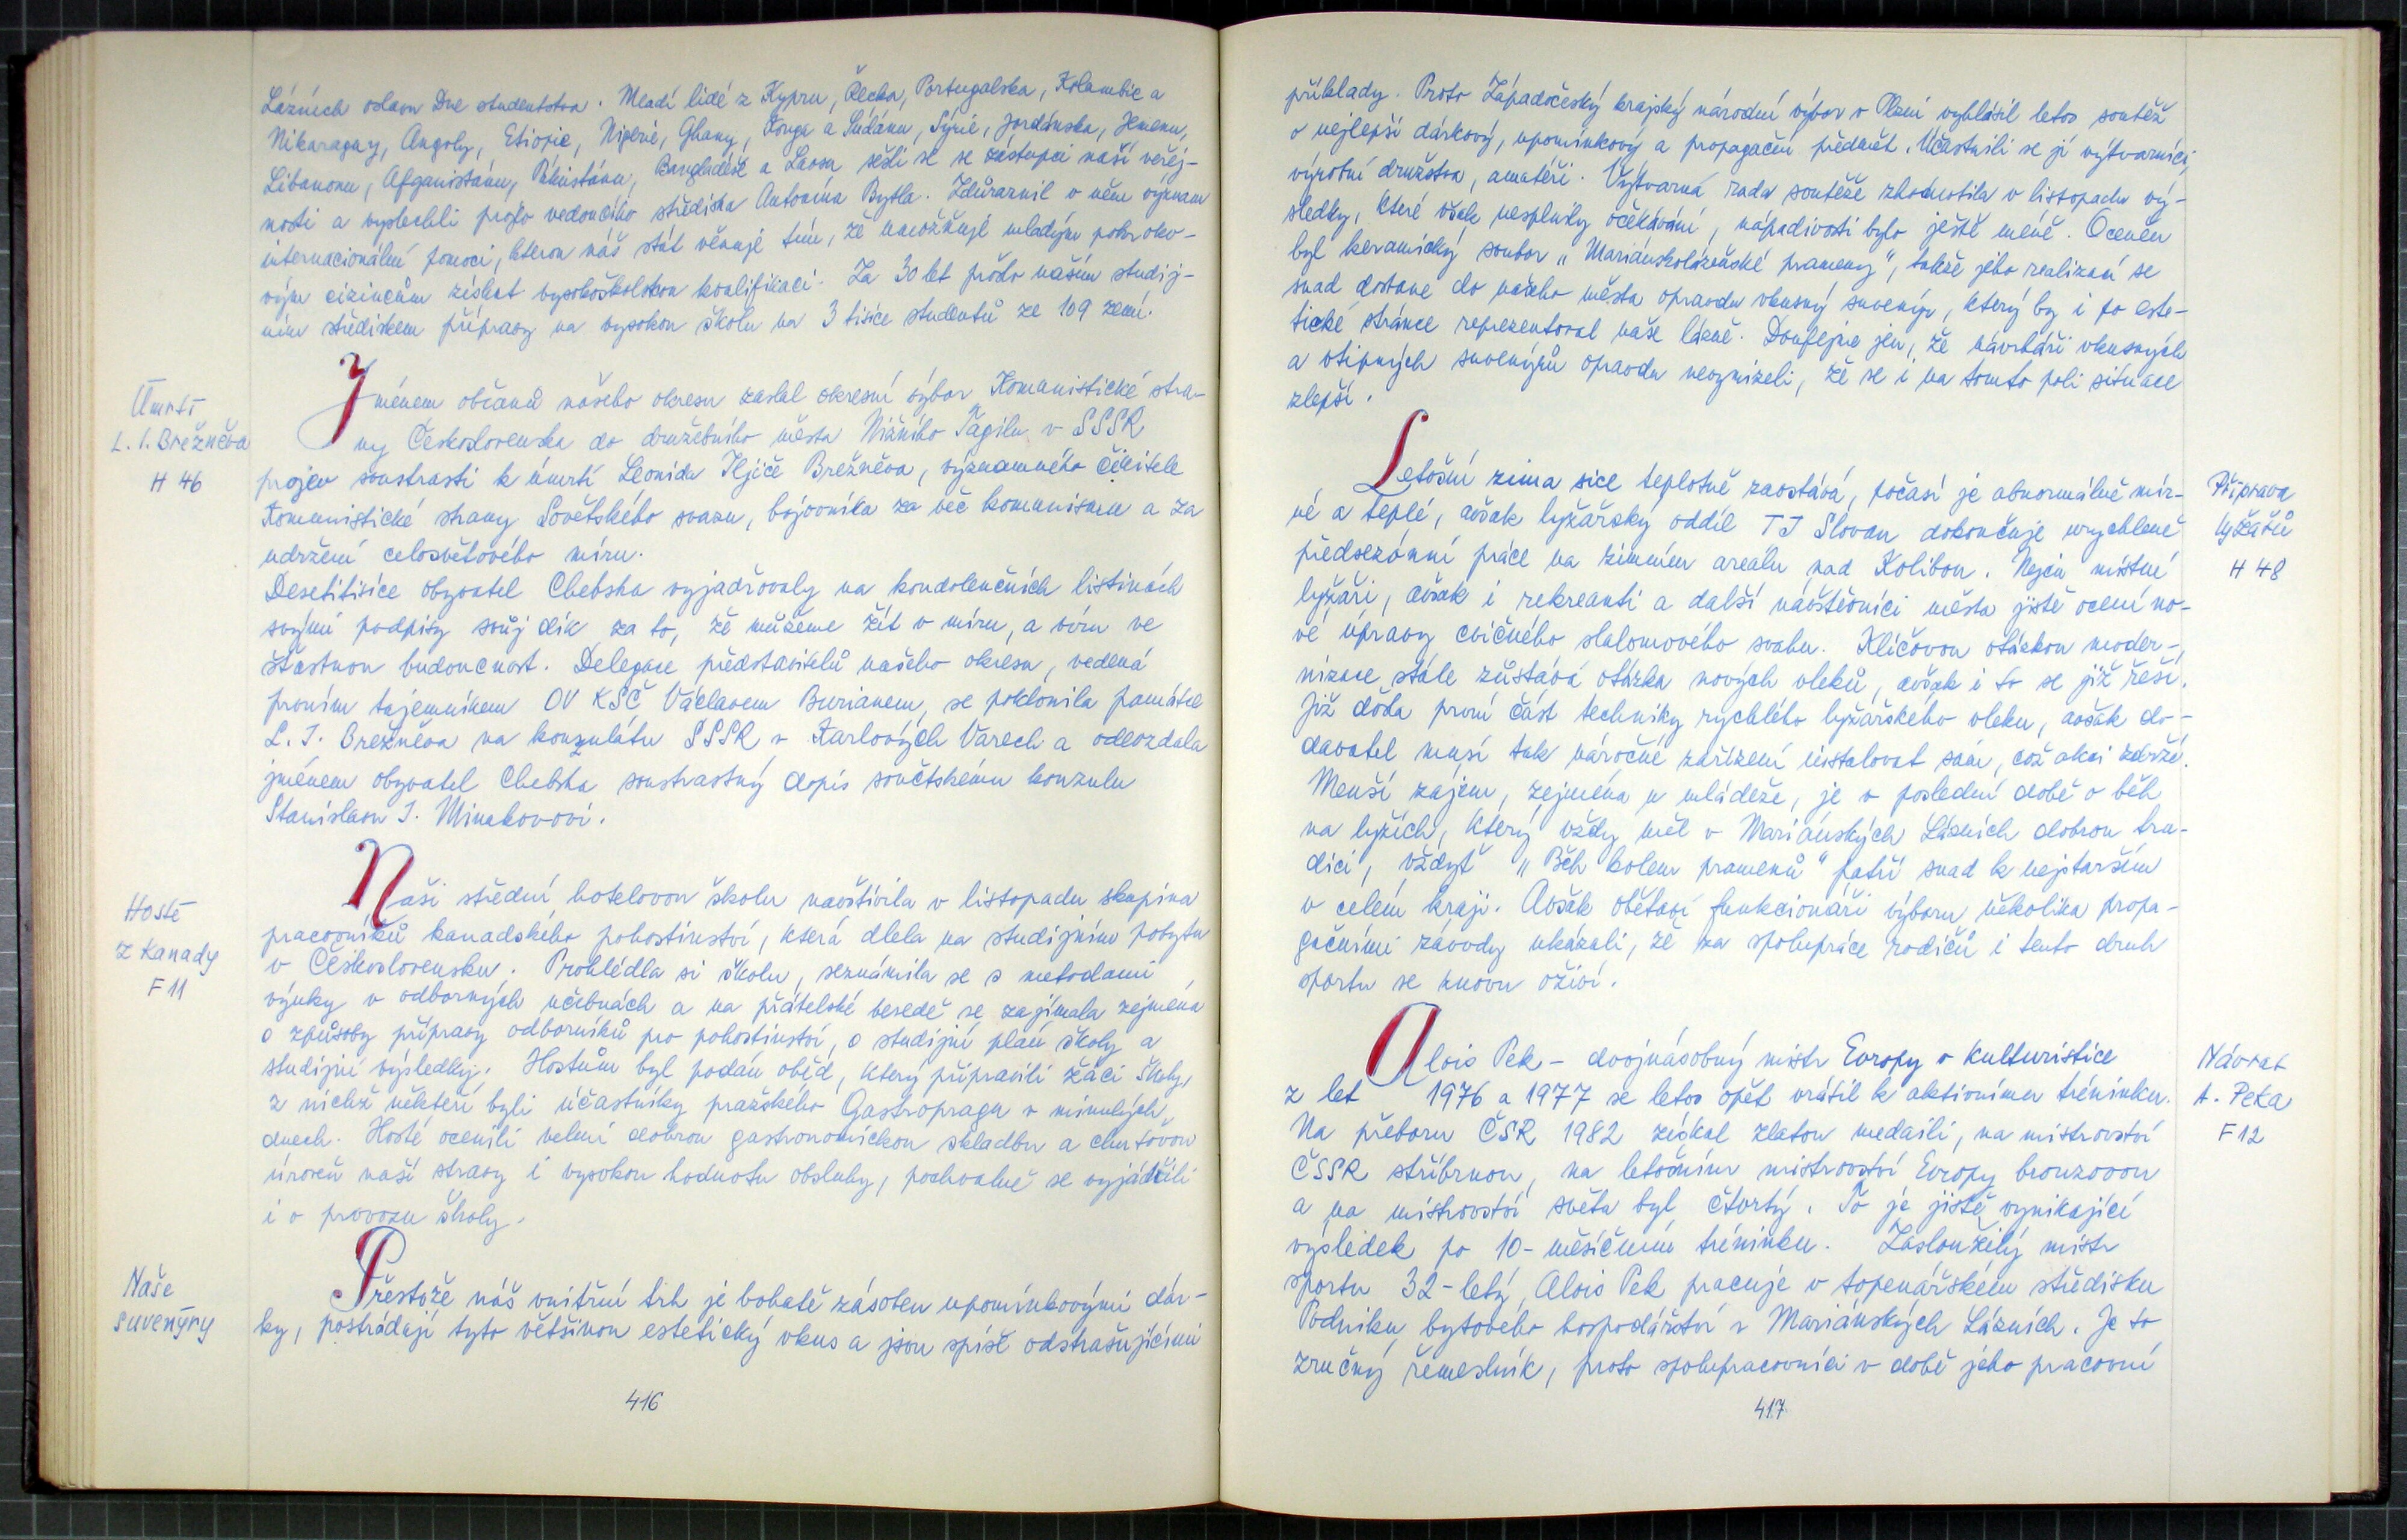 Lázních oslavu Dne studentstva. Mladí lidé z Kypru, Řecka, Portugalska, Kolumbie a
Nikaraguy, Angoly, Etiopie, Nigerie, Ghany, Konga a Súdánu, Sýrie, Jordánska, Jemenu,
Libanonu, Afganistánu, Pákistánu, Bangladéše a Laosu sešli se se zástupci naší veřej-
nosti a vyslechli projev vedoucího střediska Antonína Bytla. Zdůraznil v něm význam
internacionální pomoci, kterou náš stát věnuje tím, že umožňuje mladým pokrokov-
ým cizincům získat vysokoškolskou kvalifikaci. Za 30 let prošlo naším studij-
ním střediskem přípravy na vysokou školu na 3 tisíce studentů ze 109 zemí.
Úmrtí
L. I. Brežněva
H 46
Jménem občanů našeho okresu zaslal okresní výbor Komunistické stra-
ny Československa do družebního města Nižního Tagilu v SSSR
projev soustrasti k úmrtí Leonida Iljiče Brežněva, významného činitele
Komunistické strany Sovětského svazu, bojovníka za věc komunismu a za
udržení celosvětového míru.
Desetitisíce obyvatel Chebska vyjadřovaly na kondolenčních listinách
svými podpisy svůj dík za to, že můžeme žít v míru, a víru ve
šťastnou budoucnost. Delegace představitelů našeho okresu, vedená
prvním tajemníkem OV KSČ Václavem Burianem, se poklonila památce
L. I. Brežněva na konzulátu SSSR v Karlových Varech a odevzdala
jménem obyvatel Chebska soustrastný dopis sovětskému konzulu
Stanislavu I. Minakovovi.
Hosté
z Kanady
F 11
Naši střední hotelovou školu navštívila v listopadu skupina
pracovníků kanadského pohostinství, která dlela na studijním pobytu
v Československu. Prohlédla si školu, seznámila se s metodami
výuky v odborných učebnách a na přátelské besedě se zajímala zejména
o způsoby přípravy odborníků pro pohostinství, o studijní plán školy a
studijní výsledky. Hostům byl podán oběd, který připravili žáci školy,
z nichž někteří byli účastníky pražského Gastropragu v minulých
dnech. Hosté ocenili velmi dobrou gastronomickou skladbu a chuťovou
úroveň naší stravy i vysokou hodnotu obsluhy, pochvalně se vyjádřili
i o provozu školy.
Naše
suvenýry
Přestože náš vnitřní trh je bohatě zásoben upomínkovými dár-
ky, postrádají tyto většinou estetický vkus a jsou spíše odstrašujícími
416
příklady. Proto Západočeský krajský národní výbor v Plzni vyhlásil letos soutěž
o nejlepší dárkový, upomínkový a propagační předmět. Účastnili se jí výtvarníci,
výrobní družstva, amatéři. Výtvarná rada soutěže zhodnotila v listopadu vý-
sledky, které však nesplnily očekávání, nápaditosti bylo ještě méně. Oceněn
byl keramický soubor "Mariánskolázeňské prameny", takže jeho realizací se
snad dostane do našeho města opravdu vkusný suvenýr, který by i po este-
tické stránce reprezentoval naše lázně. Doufejme jen, že návrháři vkusných
a vtipných suvenýrů opravdu nevymizeli, že se i na tomto poli situace
zlepší.
Příprava
lyžařů
H 48
Letošní zima sice teplotně zaostává, počasí je abnormálně mír-
né a teplé, avšak lyžařský oddíl TJ Slovan dokončuje urychleně
předsezónní práce na zimním areálu nad Kolibou. Nejen místní
lyžaři, avšak i rekreanti a další návštěvníci města jistě ocení no-
vé úpravy cvičného slalomového svahu. Klíčovou otázkou moder-
nizace stále zůstává otázka nových vleků, avšak i to se již řeší.
Již došla první část techniky rychlého lyžařského vleku, avšak do-
davatel musí tak náročné zařízení instalovat sám, což akci zdrží.
Menší zájem, zejména u mládeže, je v poslední době o běh
na lyžích, který vždy měl v Mariánských Lázních dobrou tra-
dici, vždyť "Běh kolem pramenů" patří snad k nejstarším
v celém kraji. Avšak obětaví funkcionáři výboru několika propa-
gačními závody ukázali, že za spolupráce rodičů i tento druh
sportu se znovu oživí.
Návrat
A. Peka
F 12
Alois Pek - dvojnásobný mistr Evropy v kulturistice
z let 1976 a 1977 se letos opět vrátil k aktivnímu tréninku.
Na přeboru ČSR 1982 získal zlatou medaili, na mistrovství
ČSSR stříbrnou, na letošním mistrovství Evropy bronzovou
a na mistrovství světa byl čtvrtý. To je jistě vynikající
výsledek po 10-měsíčním tréninku. Zasloužilý mistr
sportu 32-letý Alois Pek pracuje v topenářském středisku
Podniku bytového hospodářství v Mariánských Lázních. Je to
zručný řemeslník, proto spolupracovníci v době jeho pracovní
417